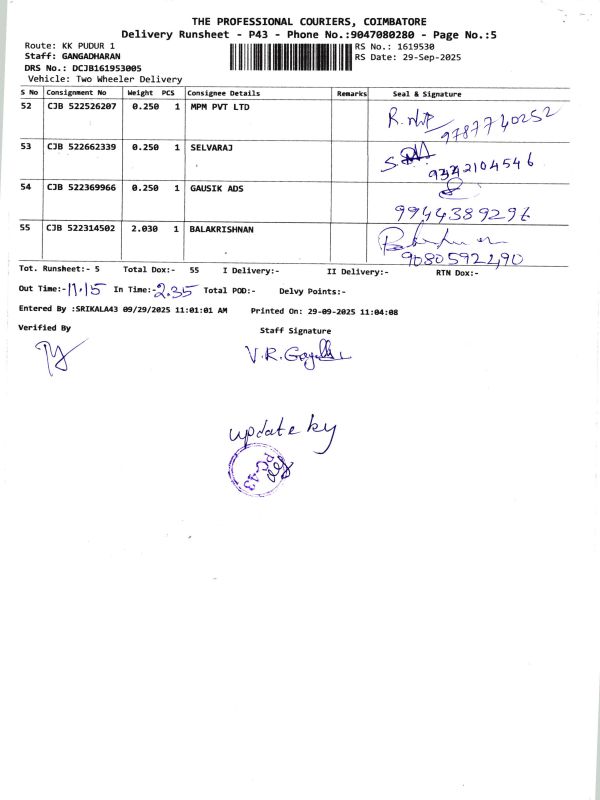 THE PROFESSIONAL COURIERS, COIMBATORE
Delivery Runsheet - P43 - Phone No.:9047080280 - Page No.:5
Route: KK PUDUR 1
RS No.: 1619530
Staff: GANGADHARAN
RS Date: 29-Sep-2025
DRS No.: DCJB161953005
Vehicle: Two Wheeler Delivery
S No Consignment No Weight PCS Consignee Details Remarks Seal & Signature
52 CJB 522526207 0.250 1 MPM PVT LTD
9787740252
53 CJB 522662339 0.250 1 SELVARAJ
9342104546
54 CJB 522369966 0.250 1 GAUSIK ADS
9944389296
55 CJB 522314502 2.030 1 BALAKRISHNAN
Tot. Runsheet:- 5 Total Dox:- 55 I Delivery:- II Delivery:- RTN Dox:-
Out Time:-11.15 In Time:-2.35 Total POD:- Delvy Points:-
Entered By :SRIKALA43 09/29/2025 11:01:01 AM Printed On: 29-09-2025 11:04:08
Verified By Staff Signature
update by
PC-43